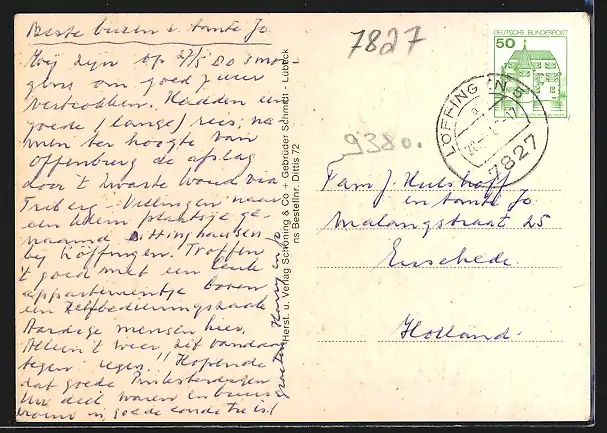 Beste buren en tante Jo.
Wij zijn op 27/5 80 's mor
gens om goed 7 uur
vertrokken. Hadden een
goede (lange) reis, na
men ter hoogte van
Offenburg de afslag
door 't zwarte woud via
Triberg - Villingen naar
een klein plaatsje ge-
naamd Dittinghausen
bij Löffingen. Troffen
't goed met een leuk
appartementje boven
een zelfbedieningszaak
Aardige mensen hier.
Alleen 't weer zit vandaag
tegen regen!! Hopende
dat goede Pinksterdagen
Uw deel waren en buur
vrouw in goede conditie is!
groeten Harry en Jo
Herst. u. Verlag Schöning & Co + Gebrüder Schmidt - Lübeck
ns Bestellnr. Dittis 72
L
7827
9380.
DEUTSCHE BUNDESPOST
50
LÖFFINGEN
7827
Fam J Hulshoff
en tante Jo
Malangstraat 25
Enschede
Holland.